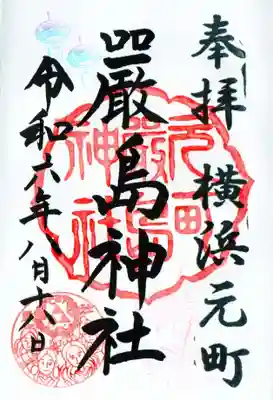 奉拝 横浜元町
嚴島神社
令和六年八月十八日
元町
嚴島
神社